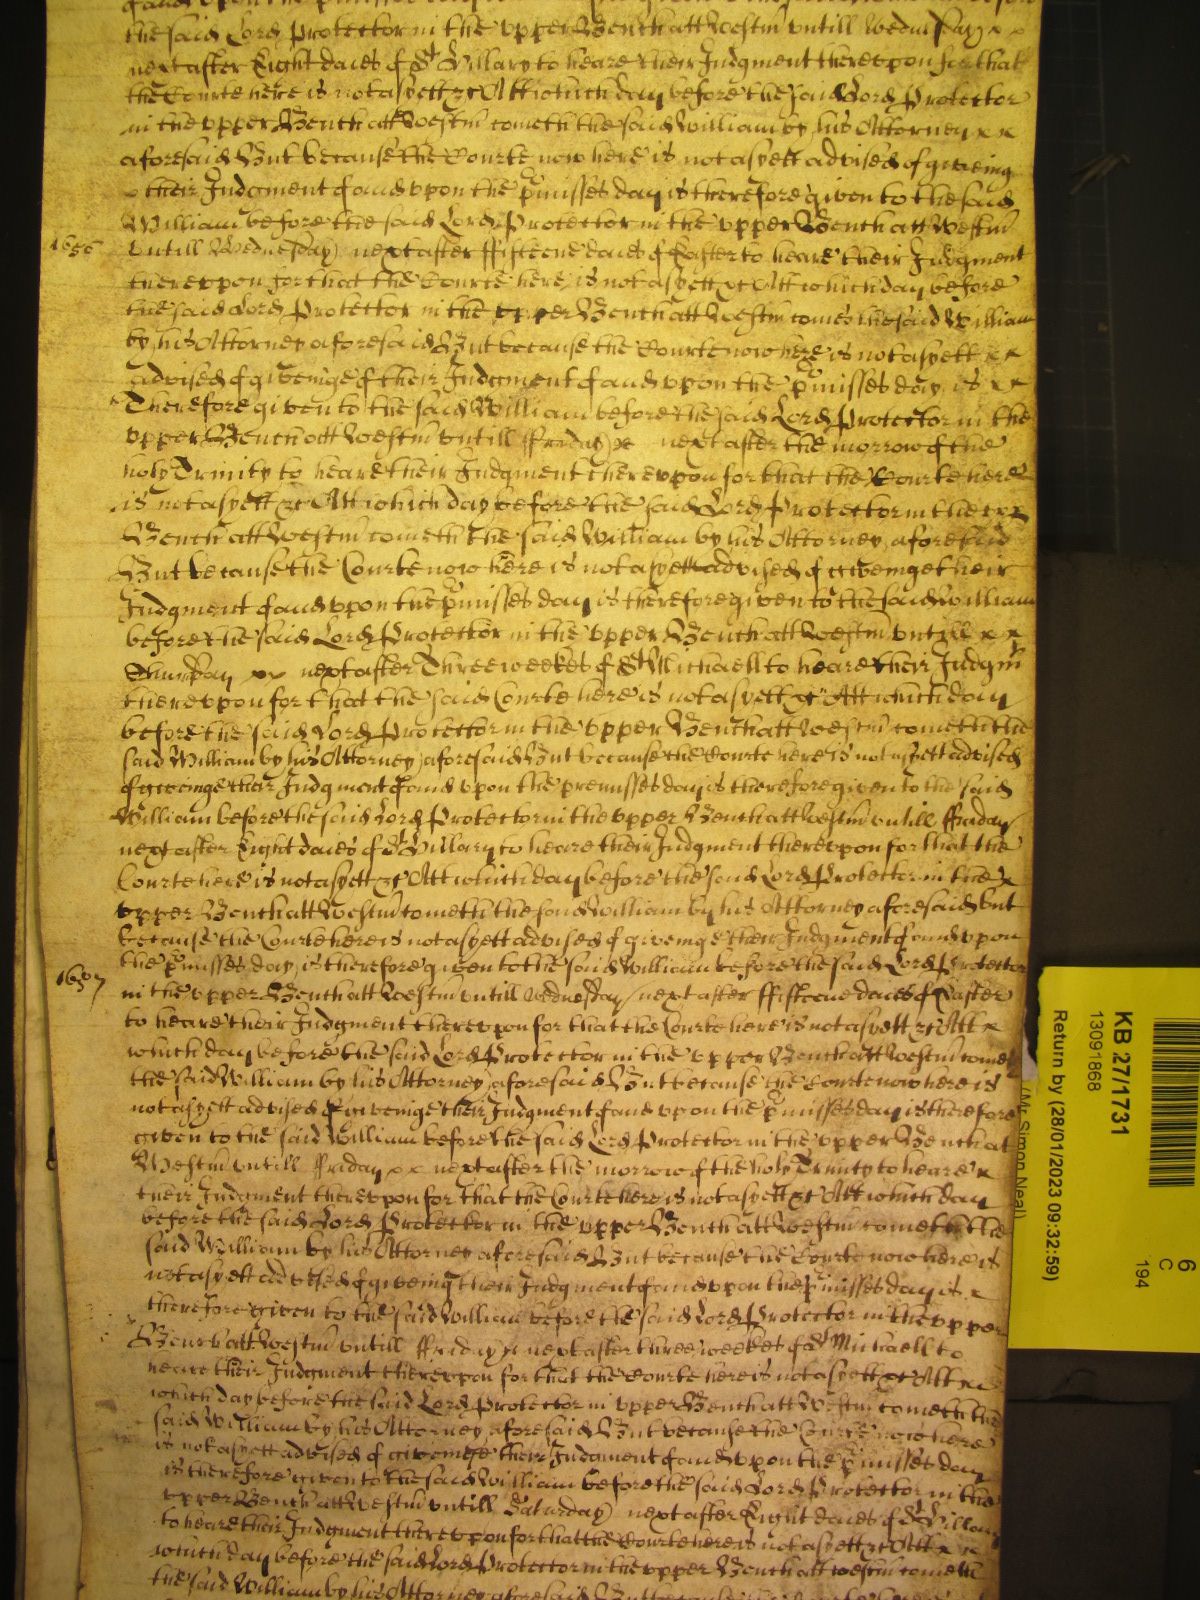 the said Lord Protector in the upper Bench att Westm untill Wednesday x x
next after Eight daies of St Hillary to heare their Judgment thereupon for that
the Courte here is not as yett &c Att which day before the said Lord Protector
in the upper Bench att Westm cometh the said William by his Attorney x x
aforesaid But because the Courte now here is not as yett advised of giveing
their Judgment of and upon the pmisses day is therefore given to the said
William before the said Lord Protector in the upper Bench att Westm
1656
untill Wednesday next after fifteene daies of Easter to heare their Judgment
thereupon for that the Courte here is not as yett &c Att which day before
the said Lord Protector in the upper Bench att Westm comes the said William
by his Attorney aforesaid But because the Courte now here is not as yett x x
advised of giveinge of their Judgment of and upon the pmisses day is x x
Therefore given to the said William before the said Lord Protector in the
upper Bench att Westm untill ffriday x next after the morrow of the
holy Trinity to heare their Judgment thereupon for that the Courte here
is not as yett &c Att which day before the said Lord Protector in the upp
Bench att Westm cometh the said William by his Attorney aforesaid
But because the Courte now here is not as yett advised of giveinge their
Judgment of and upon the pmisses day is therefore given to the said William
before the said Lord Protector in the upper Bench att Westm untill x x
Thursday xx next after Three weekes of St Michaell to heare their Judgmt
thereupon for that the said Courte here is not as yett &c Att which day
before the said Lord Protector in the upper Bench att Westm cometh the
said William by his Attorney aforesaid But because the Courte here is not as yett advised
of giveinge their Judgment of and upon the premisses day is therefore given to the said
William before the said Lord Protector in the upper Bench att Westm untill ffriday
next after Eight daies of St Hillary to heare their Judgment thereupon for that the
Courte here is not as yett &c Att which day before the said Lord Protector in the x
upper Bench att Westm cometh the said William by his Attorney aforesaid but
because the Courte here is not as yett advised of giveinge their Judgment of and upon
the pmisses day is therefore given to the said William before the said Lord Protector
1657
in the upper Bench att Westm untill wednesday next after ffifteene daies of Easter
to heare their Judgment thereupon for that the Courte here is not as yett &c Att x
which day before the said Lord Protector in the upper Bench att Westm cometh
the said William by his Attorney aforesaid But because the Courte now here is
not as yett advised of giveinge their Judgment of and upon the pmisses day is therefore
given to the said William before the said Lord Protector in the upper Bench att
Westm untill ffriday x x next after the morrow of the holy Trinity to heare x
their Judgment thereupon for that the Courte here is not as yett &c Att which day
before the said Lord Protector in the upper Bench att Westm cometh the
said William by his Attorney aforesaid But because the Courte now here is
not as yett advised of giveing their Judgment of and upon the pmisses day is x
therefore given to the said William before the said Lord Protector in the upper
Bench att Westm untill ffriday x next after three weekes of St Michaell to
heare their Judgment thereupon for that the Courte here is not as yett &c Att x x
which day before the said Lord Protector in upper Bench att Westm cometh the
said William by his Attorney aforesaid But because the Courte now here
is not as yett advised of giveinge their Judgment of and upon the pmisses day
is therefore given to the said William before the said Lord Protector in the
upper Bench att Westm untill Saturday next after Eight daies of St Hillary
to heare their Judgment thereupon for that the Courte here is not as yett &c Att x x
which day before the said Lord Protector in the upper Bench att Westm cometh
the said William by his Attorney aforesaid
KB 27/1731
13091868
Return by (28/01/2023 09:32:59)
(Mr Simon Neal)
6
C
194